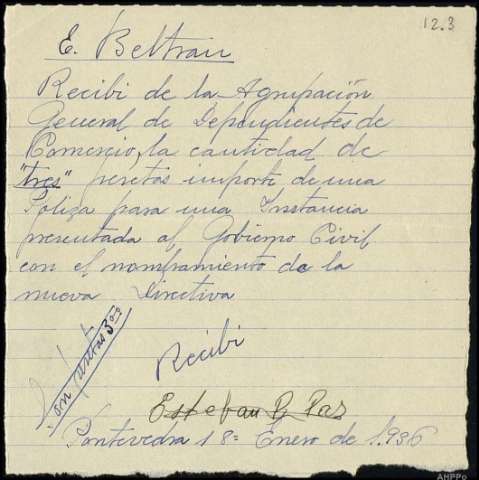 12.3
E. Beltran
Recibi de la Agrupación
General de Dependientes de
Comercio, la cantidad de
"tres" pesetas importe de una
Poliza para una Instancia
presentada al Gobierno Civil
con el nombramiento de la
nueva Directiva
Son pesetas 3'00
Recibi
Esteban Paz
Pontevedra 18 Enero de 1.936
AHPPo